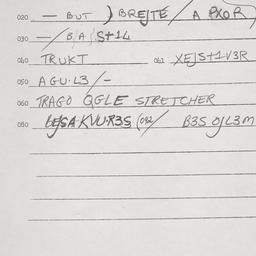 020 — BUT ) BREJTE / A PXOR
030 — / B/A / S+14
040 TRUKT 061 XEJS+1V3R
050 AGU·L3 / –
060 TRAGO QGLE STRETCHER
080 (092/ B3S OJL3M